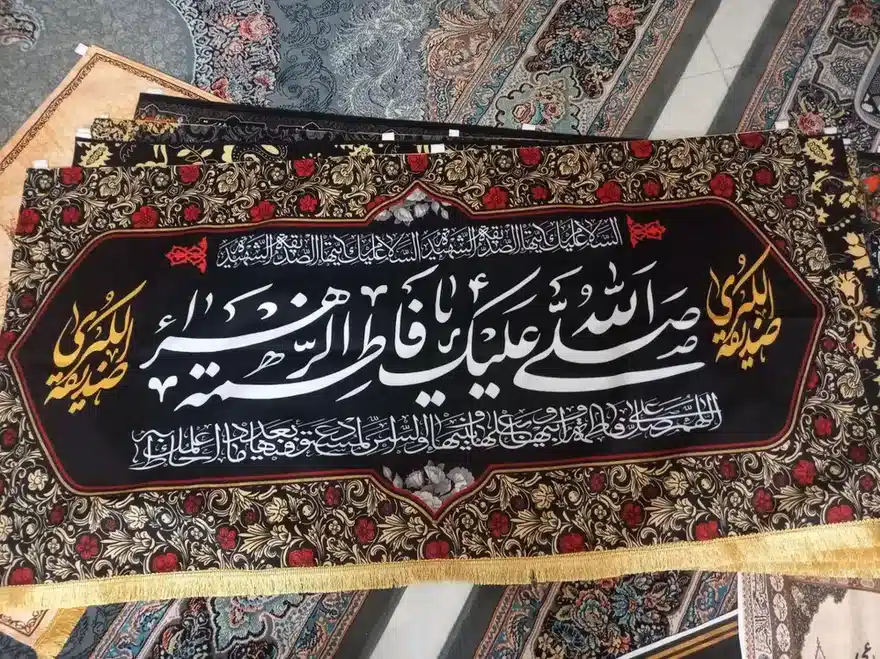 السلام علیک ایتها الصدیقة الشهیدة السلام علیک ایتها الصدیقة الشهیدة
صدیقة الکبری
صلی الله علیک یا فاطمة الزهراء
صدیقة الکبری
اللهم صل علی فاطمة و ابیها و بعلها و بنیها و السر المستودع فیها بعدد ما احاط به علمک